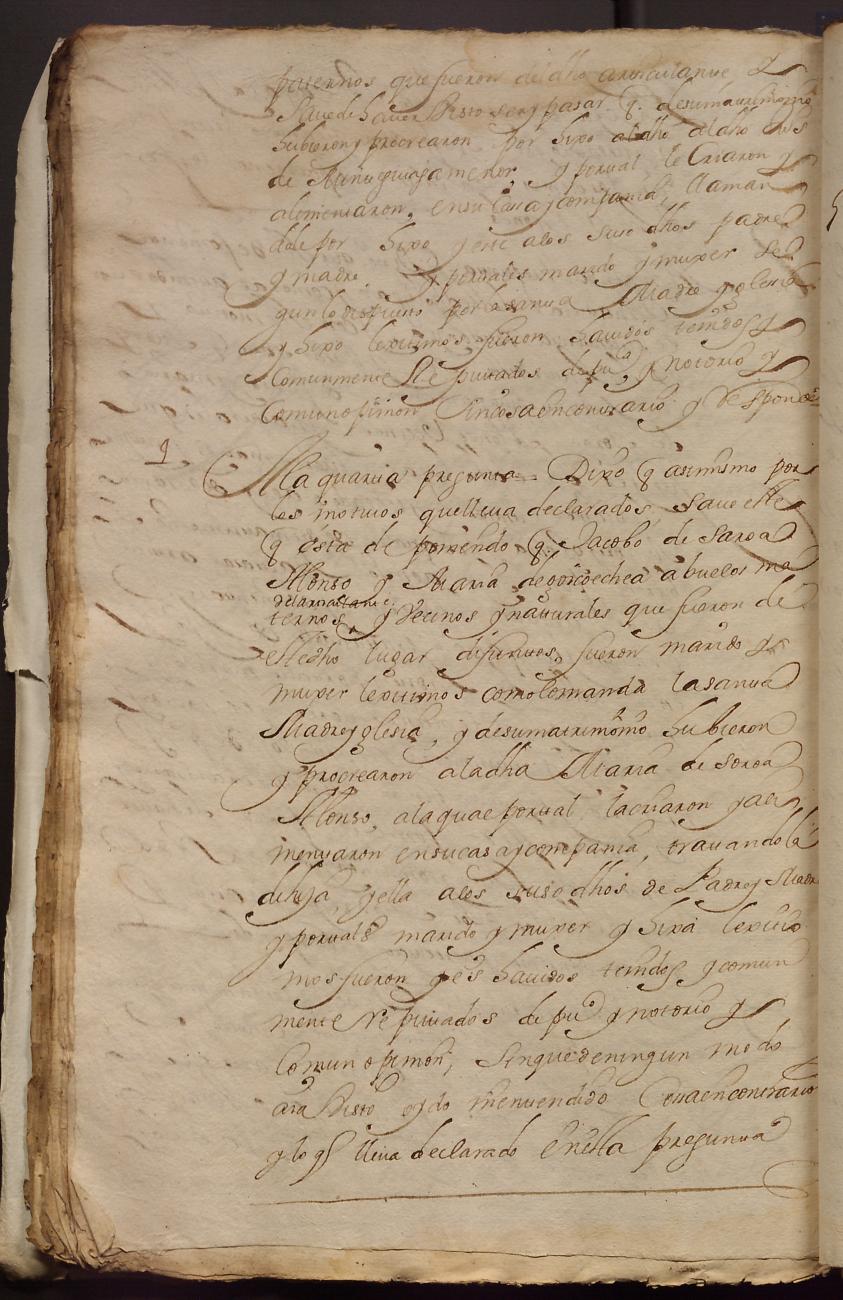 paternos que fueron del dho articulante, y
save de haver visto ser y pasar q. de su matrimonio
hubieron y procrearon por hixo al dho al dho
de menor, y por tal le criaron y
alimentaron, en su casa y compania, llaman
dole por hixo y este a los suso dhos padre
y madre. y por tales marido y muxer se
gun lo dispuesto por la santa Madre yglesia
y hixo lexitimos fueron havidos tenidos y
comunmente Reputados de puco y notorio y
comun opinion sin cosa en contrario y Responde
4 A la quarta pregunta = Dixo q asimismo por
los motivos que lleva declarados save este
q esta deponiendo q. Jacobo de Saroa
Alonso y Maria de goicoechea abuelos ma
del articulante
ternos, y vecinos y naturales que fueron de
este dho lugar difuntos, fueron marido y
muxer lexitimos como lo manda la santa
Madre yglesia, y de su matrimonio hubieron
y procrearon a la dha Maria de Soroa
Alonso, a la qual por tal la criaron y ali
mentaron en su casa y compania, tratandola
de hija y ella a los suso dhos de Padre y Madre
y por tales marido y muxer y hixa lexiti
mos fueron y es havidos tenidos y comun
mente reputados de puco y notorio y
comun opinion, sin que de ningun modo
aia visto oydo ni entendido cosa en contrario
y lo q lleva declarado en esta pregunta